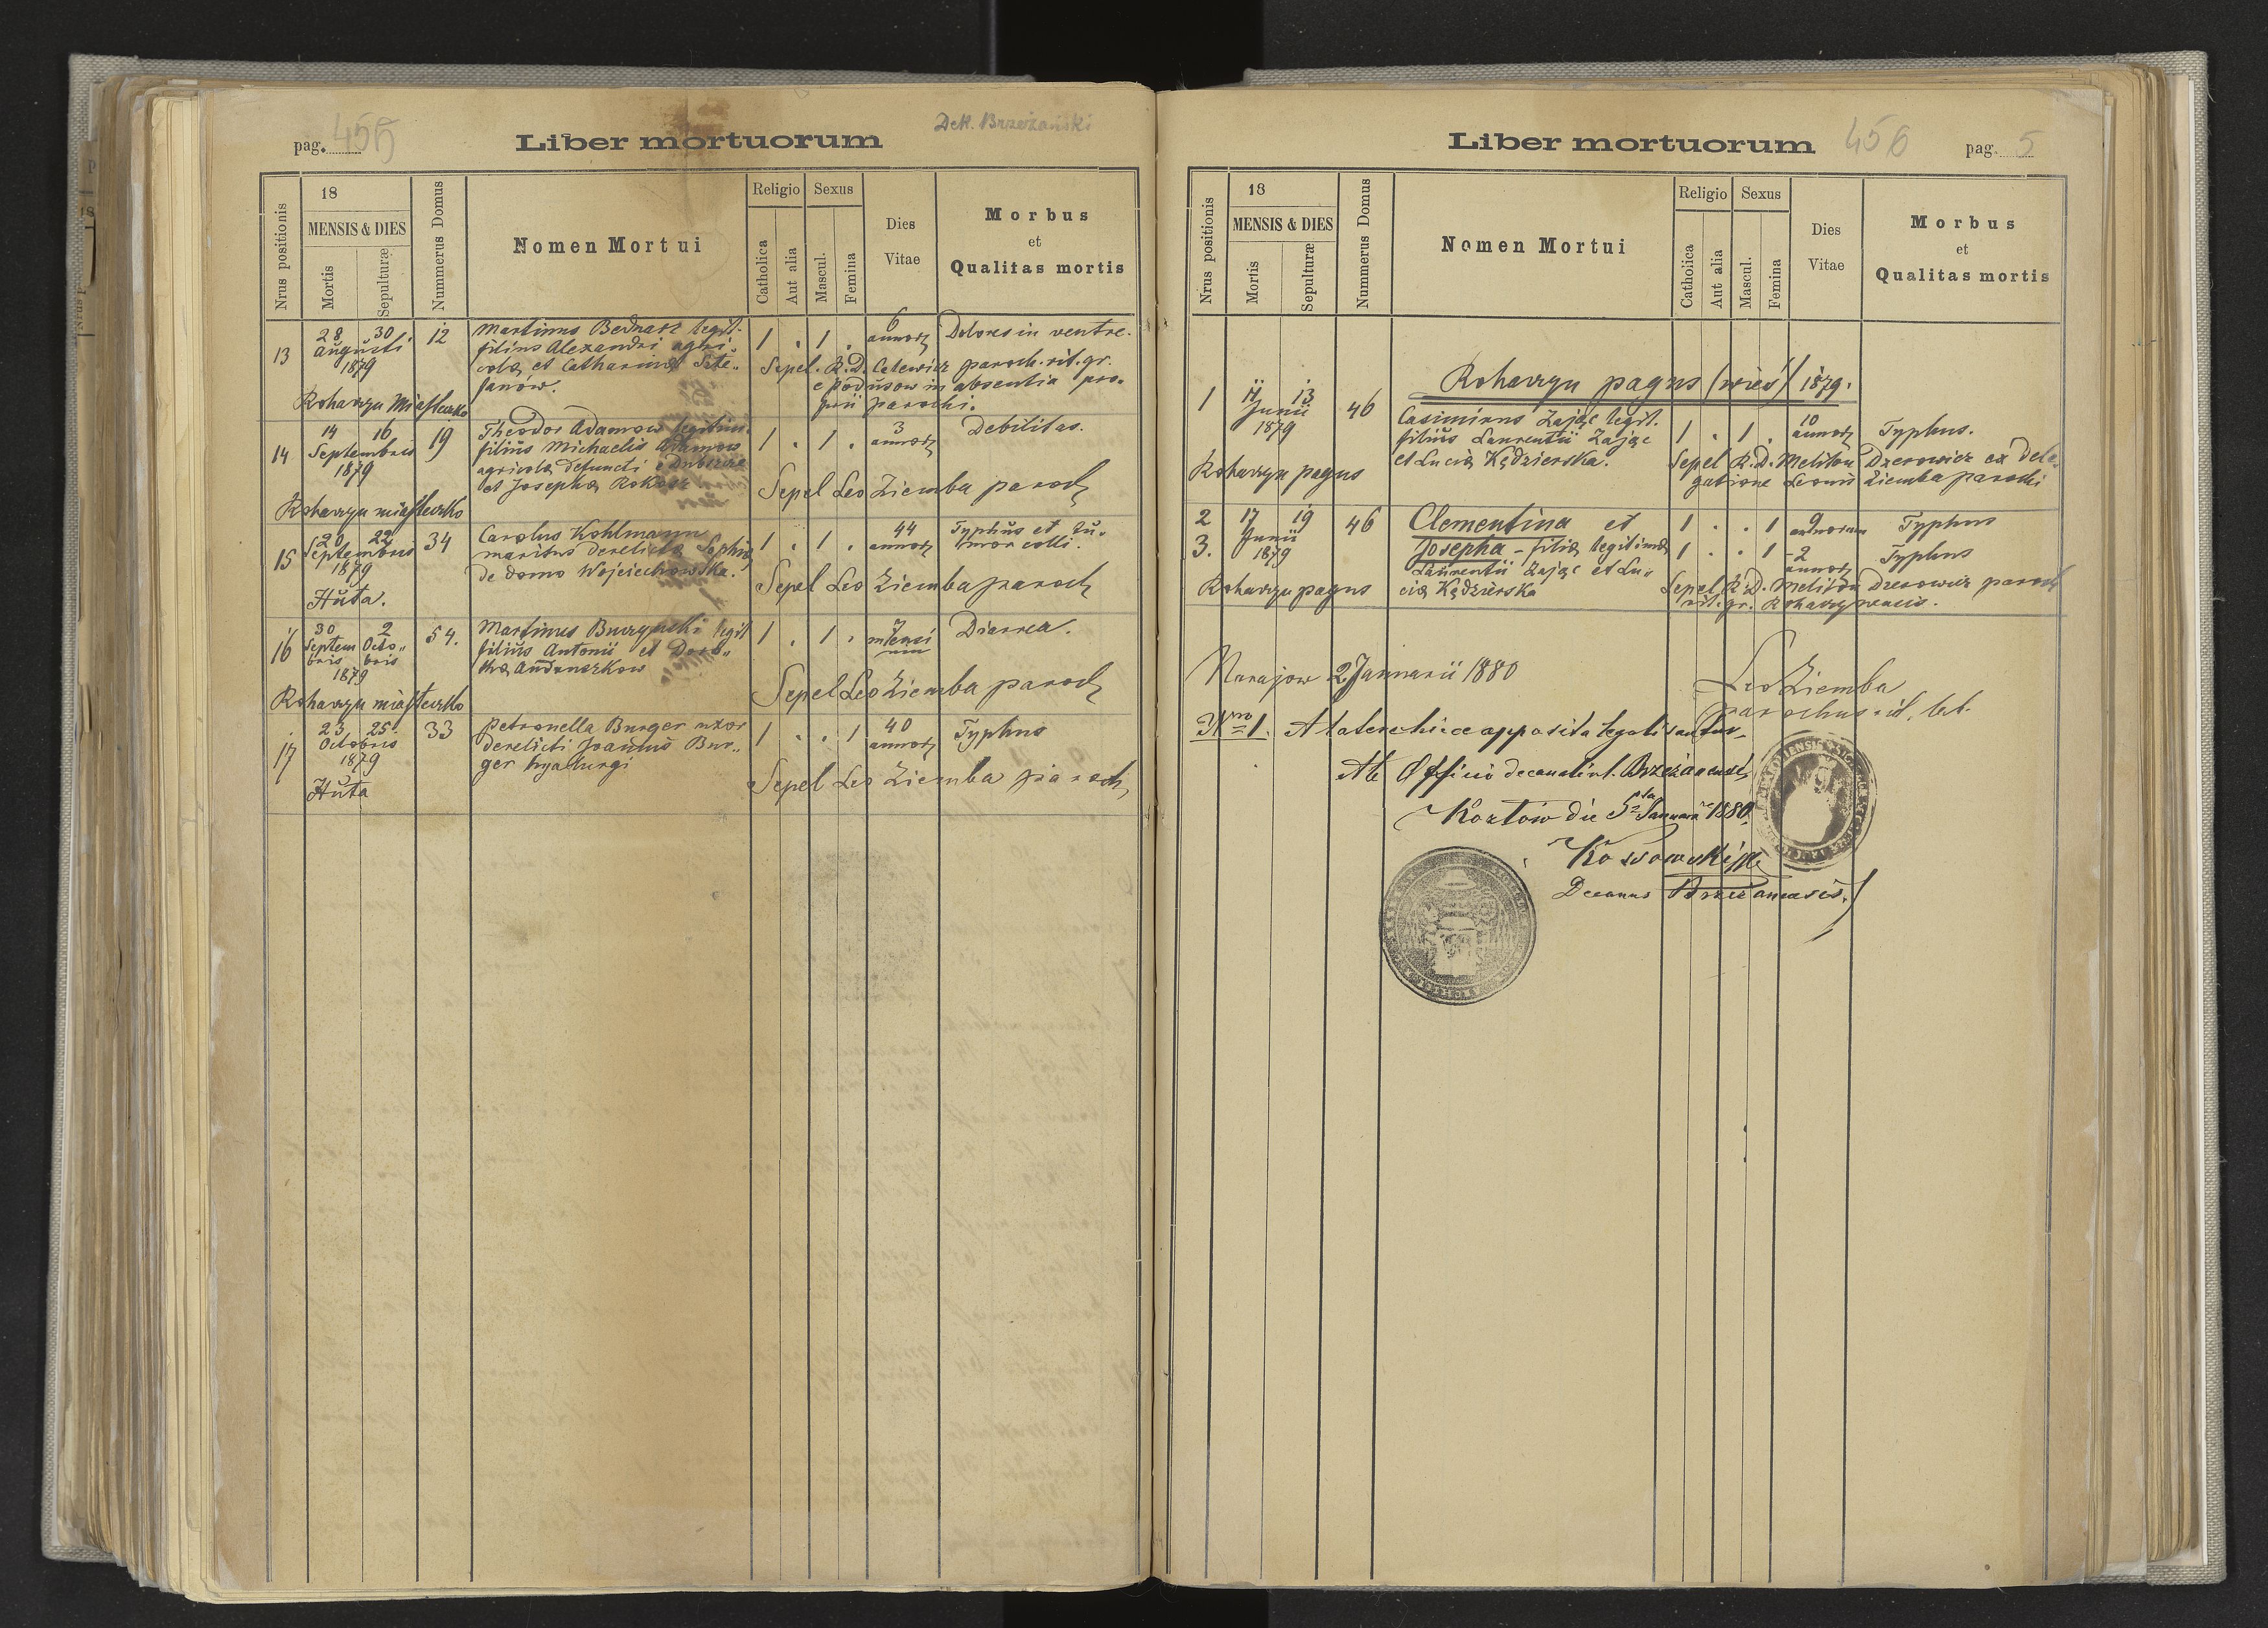 pag. 455
Liber mortuorum
Dek. Brzeżański
Nrus positionis
18
MENSIS & DIES
Mortis
Sepulturæ
Nummerus Domus
Nomen Mortui
Religio
Catholica
Aut alia
Sexus
Mascul.
Femina
Dies
Vitae
Morbus
et
Qualitas mortis
13 28 30 12 Martinus Bednarz legit. 1 . 1 . 6 Dolores in ventre.
augusti filius Alexandri agri- annor
1879 colæ et Catharinæ Ste„ Sepel. R.D. Catewicz paroch. rit. gr.
fanów. e Podusow in absentia pro-
Rohaczyn Miasteczko prii parochi.
14 14 16 19 Theodor Adamow legitim. 1 . 1 . 3 Debilitas.
Septembris filius Michaelis Adamow annor
1879 agricolæ defuncti
et Josephæ Sepel Leo Ziemba paroch
Rohaczyn miasteczko
15 20 22 34 Carolus Kohlmann 1 . 1 . 44 Typhus et tu„
Septembris maritus derelictæ Sophiæ annor mor colli.
1879 de domo Wojciechowska.
Huta. Sepel Leo Ziemba paroch
16 30 2 54. Martinus Buczynski legit 1 . 1 . 7 Diarrea.
Septem Octo„ filius Antonii et Doro„ mensi
bris bris theæ um
1879
Rohaczyn miasteczko Sepel Leo Ziemba paroch
17 23 25 33 Petronella Burger uxor 1 . . 1 40 Typhus
Octobris derelicti Joannis Bur„ annor
1879 ger hyalurgi
Huta Sepel Leo Ziemba paroch
Liber mortuorum
456
pag. 5
Nrus positionis
18
MENSIS & DIES
Mortis
Sepulturæ
Nummerus Domus
Nomen Mortui
Religio
Catholica
Aut alia
Sexus
Mascul.
Femina
Dies
Vitae
Morbus
et
Qualitas mortis
Rohaczyn pagus (wieś) 1879.
1 11 13 46 Casimirus Zając legit. 1 . 1 . 10 Typhus.
Junii filius Laurentii Zając annor
1879 et Luciæ Kędzierska. Sepel R.D. Meliton Dzerowicz ex dele„
Rohaczyn pagus gatione Leonis Ziemba parochi
2 17 19 46 Clementina et 1 . . 1 9 annorum Typhus
3. Junii Josepha - filiæ legitimæ 1 . . 1 -2 Typhus
1879 Laurentii Zając et Lu„ annor
Rohaczyn pagus ciæ Kędzierska Sepel R.D. Meliton Dzerowicz paroch
rit. gr. Rohaczynensis.
Narajow 2 Januarii 1880
Leo Ziemba
parochus rit. lat.
Nro 1. Ataterchice apposita legalisantur
Ab Officio decanali r.l. Brzeżanensi
Kozłow die 5ta Januarii 1880.
Kossowski
Decanus Brzezanensis.